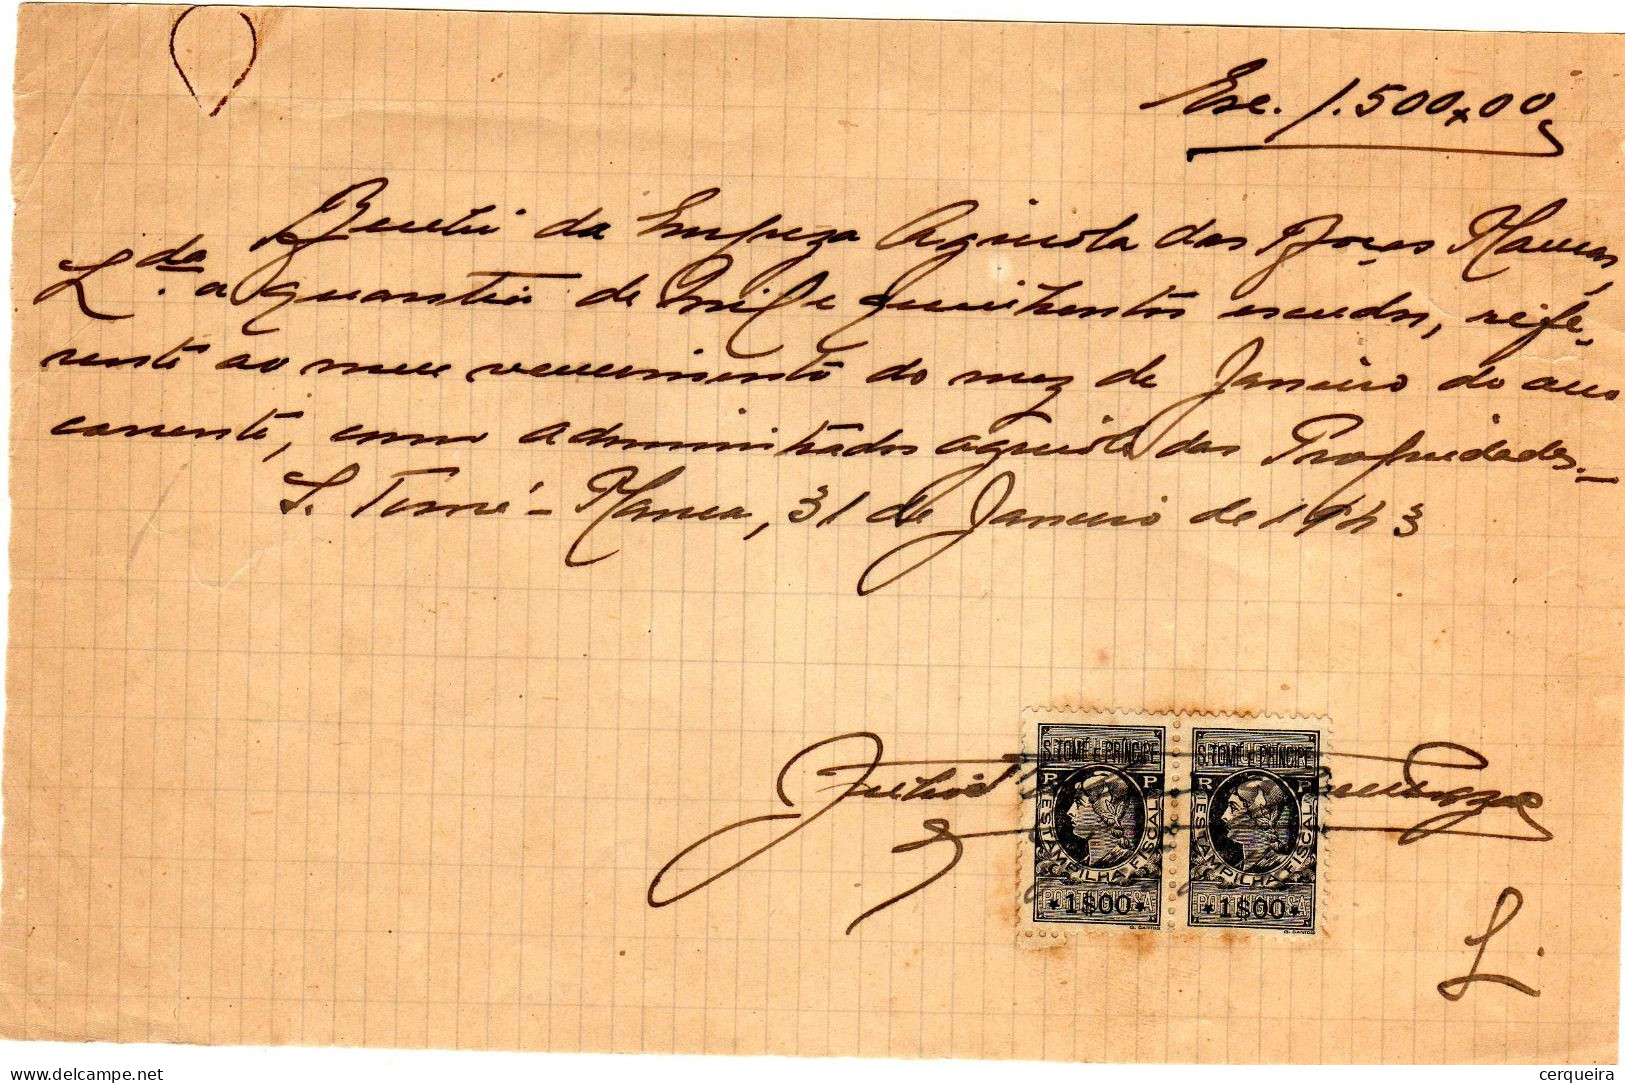 Esc. 1.500x00
Recebi da Empreza Agricola das Roças
L.da a quantia de mil e quinhentos escudos, refe-
rente ao meu vencimento do mez de Janeiro do ano
corrente, como administrador agricola das Propriedades.
S. Tomé - 31 de Janeiro de 1943
S.TOMÉ E PRÍNCIPE S.TOMÉ E PRÍNCIPE
R P R P
ESTAMPILHA FISCAL ESTAMPILHA FISCAL
PORTUGUESA PORTUGUESA
1$00 1$00
L.
www.delcampe.net cerqueira